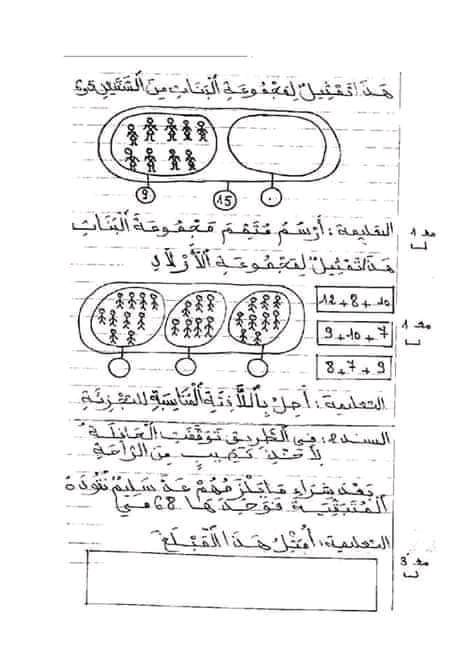 هَذَا تَمْثِيلٌ لِمَجْمُوعَةِ الْبَنَاتِ مِنَ
9
15
.
التعليمة : أَرْسُمُ مُتَمِّمَ مَجْمُوعَةَ الْبَنَاتِ
مع 1
هَذَا تَمْثِيلٌ لِمَجْمُوعَةِ الْأَوْلَادِ
12 + 8 + 10
9 + 10 + 7
مع 1
8 + 7 + 9
التعليمة : أَصِلُ بِالْمُنَاسِبَةِ
السند 2 : فِي الطَّرِيقِ تَوَقَّفَتْ الْحَافِلَةُ
لِأَخْذِ نَصِيبٍ مِنَ الرَّاحَةِ
بَعْدَ شِرَاءِ مَا يَلْزَمُهُمْ عَدَّ سَلِيمٌ نُقُودَهُ
الْمُتَبَقِّيَةَ فَوَجَدَهَا 68 مي
التعليمة : أُمَثِّلُ هَذَا الْمَبْلَغَ
مع 3